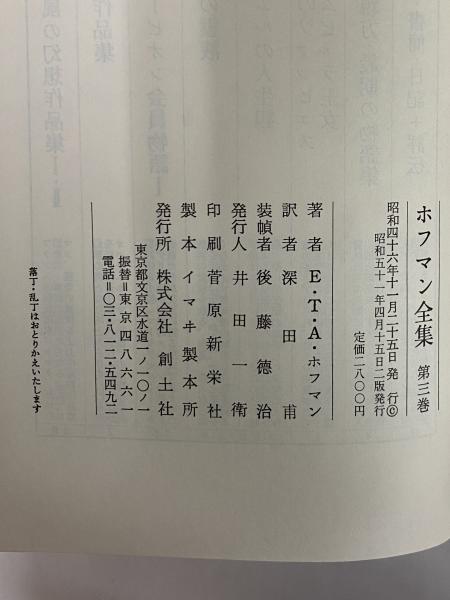 ホフマン全集 第三巻
昭和四十六年十一月二十五日発行©
昭和五十一年四月十五日二版発行
定価二八〇〇円
著者 E・T・A・ホフマン
訳者 深田甫
装幀者 後藤徳治
発行人 井田一衛
印刷 菅原新栄社
製本 イマヰ製本所
発行所 株式会社 創土社
東京都文京区水道一ノ一〇ノ一
振替=東京四八六六一
電話=〇三・八一二・五四九二
落丁・乱丁はおとりかえいたします